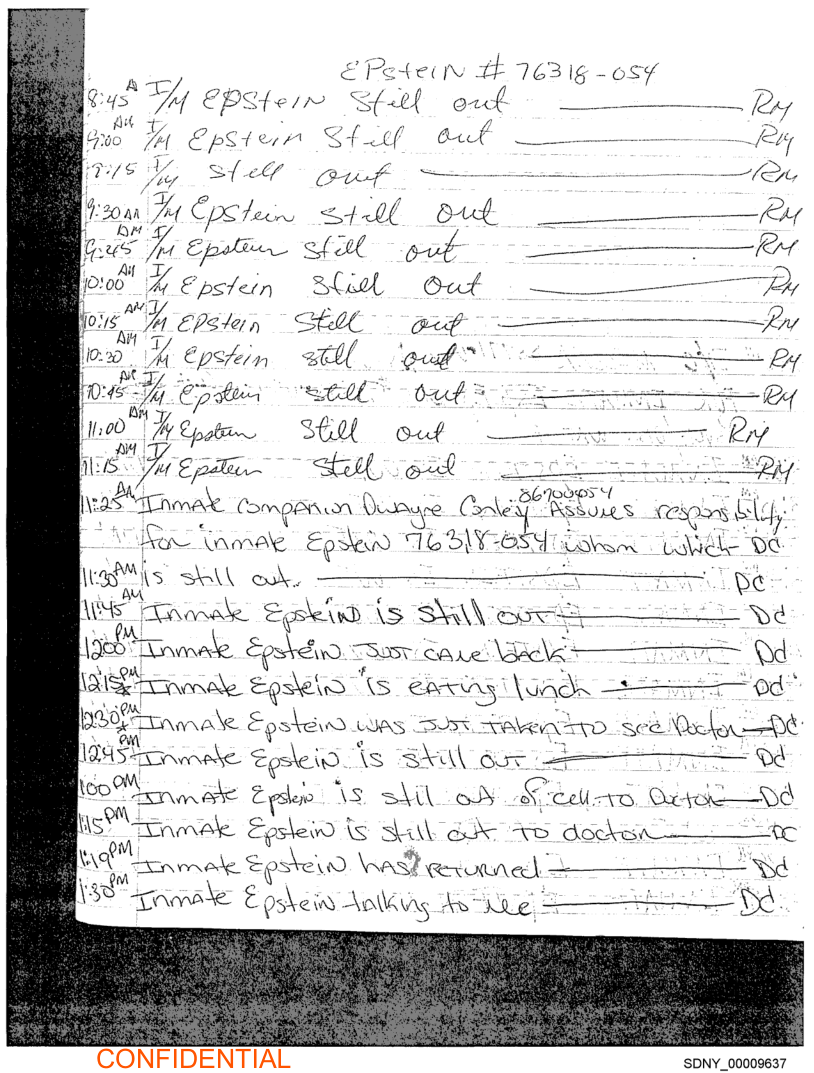 EPstein # 76318-054
8:45 A I/M EPStein Still out RM
9:00 AM I/M Epstein Still out RM
9:15 I/M still out RM
9:30 AM I/M Epstein still out RM
9:45 AM I/M Epstein still out RM
10:00 AM I/M Epstein Still Out RM
10:15 AM I/M EPstein Still out RM
10:30 AM I/M Epstein still out RM
10:45 AM I/M Epstein still out RM
11:00 AM I/M Epstein Still out RM
11:15 AM I/M Epstein Still out RM
86700054
11:25 AM Inmate companion Dwayne Conley Assures responsibility
for inmate Epstein 76318-054 whom which DC
11:30 AM is still out. DC
11:45 AM Inmate Epstein is still out DC
12:00 PM Inmate Epstein JUST came back DC
12:15 PM * Inmate Epstein is eating lunch DC
12:30 PM * Inmate Epstein was JUST TAKEN TO see Doctor DC
12:45 PM Inmate Epstein is still out DC
1:00 PM Inmate Epstein is still out of cell to Doctor DC
1:15 PM Inmate Epstein is still out to doctor DC
1:19 PM Inmate Epstein has returned DC
1:30 PM Inmate Epstein talking to me DC
CONFIDENTIAL
SDNY_00009637